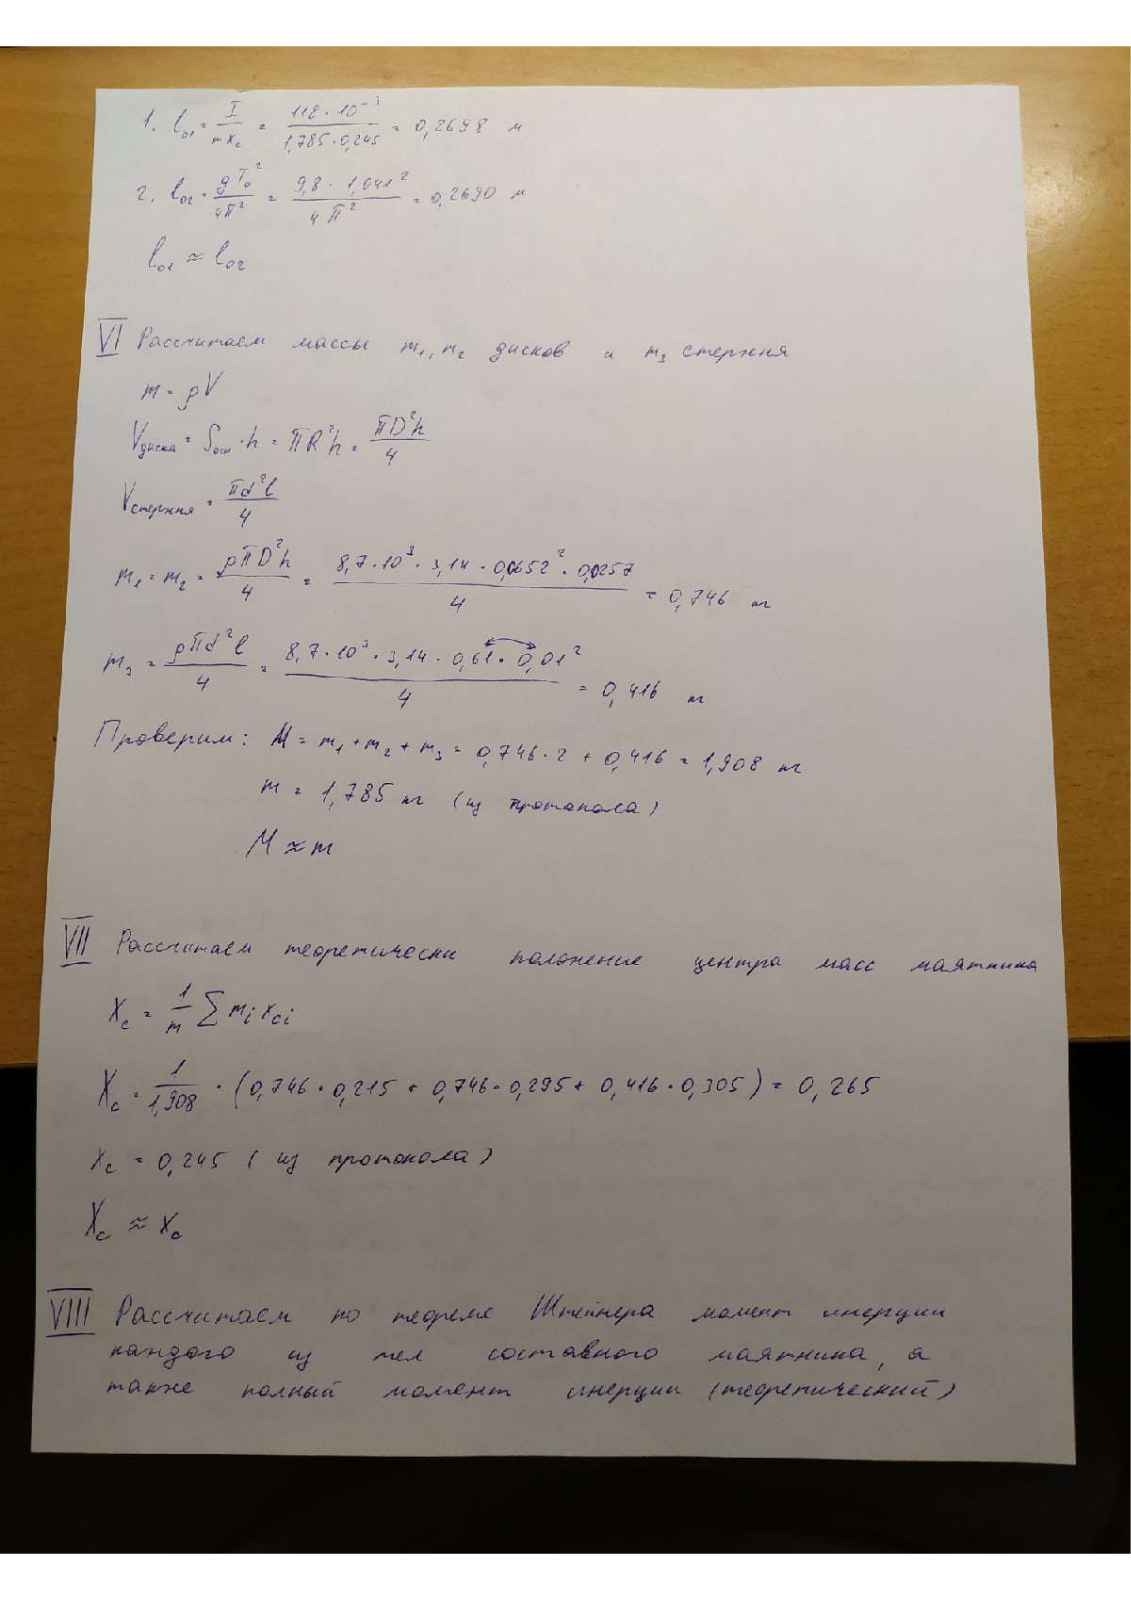 1. l₀₁ = I / mx_c = 118 · 10⁻³ / 1,785 · 0,245 = 0,2698 м
2. l₀₂ = gT₀² / 4π² = 9,8 · 1,041² / 4π² = 0,2690 м
l₀₁ ≈ l₀₂
VI Рассчитаем массы m₁, m₂ дисков и m₃ стержня
m = ρV
Vдиска = Sосн · h = πR²h = πD²h / 4
Vстержня = πd²l / 4
m₁ = m₂ = ρπD²h / 4 = 8,7 · 10³ · 3,14 · 0,0652² · 0,0257 / 4 = 0,746 кг
m₃ = ρπd²l / 4 = 8,7 · 10³ · 3,14 · 0,61 · 0,01² / 4 = 0,416 кг
Проверим: M = m₁ + m₂ + m₃ = 0,746 · 2 + 0,416 = 1,908 кг
m = 1,785 кг (из протокола)
M ≈ m
VII Рассчитаем теоретически положение центра масс маятника
X_c = 1/m ∑ m_i x_ci
X_c = 1/1,908 · (0,746 · 0,215 + 0,746 · 0,295 + 0,416 · 0,305) = 0,265
x_c = 0,245 (из протокола)
X_c ≈ x_c
VIII Рассчитаем по теореме Штейнера момент инерции
каждого из тел составного маятника, а
также полный момент инерции (теоретический)